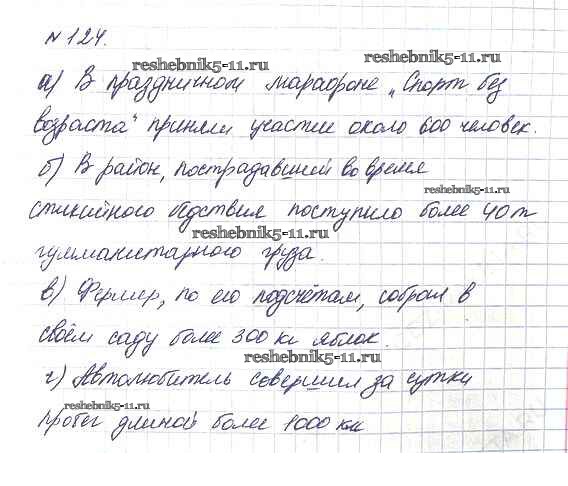 № 124.
reshebnik5-11.ru
reshebnik5-11.ru
а) В праздничном марафоне „Спорт без
возраста“ приняли участие около 600 человек.
б) В район, пострадавший во время
reshebnik5-11.ru
стихийного бедствия поступило более 40 т
reshebnik5-11.ru
гумманитарного груза.
в) Фермер, по его подсчётам, собрал в
своём саду более 300 кг яблок.
reshebnik5-11.ru
г) Автолюбитель совершил за сутки
reshebnik5-11.ru
пробег длиной более 1000 км